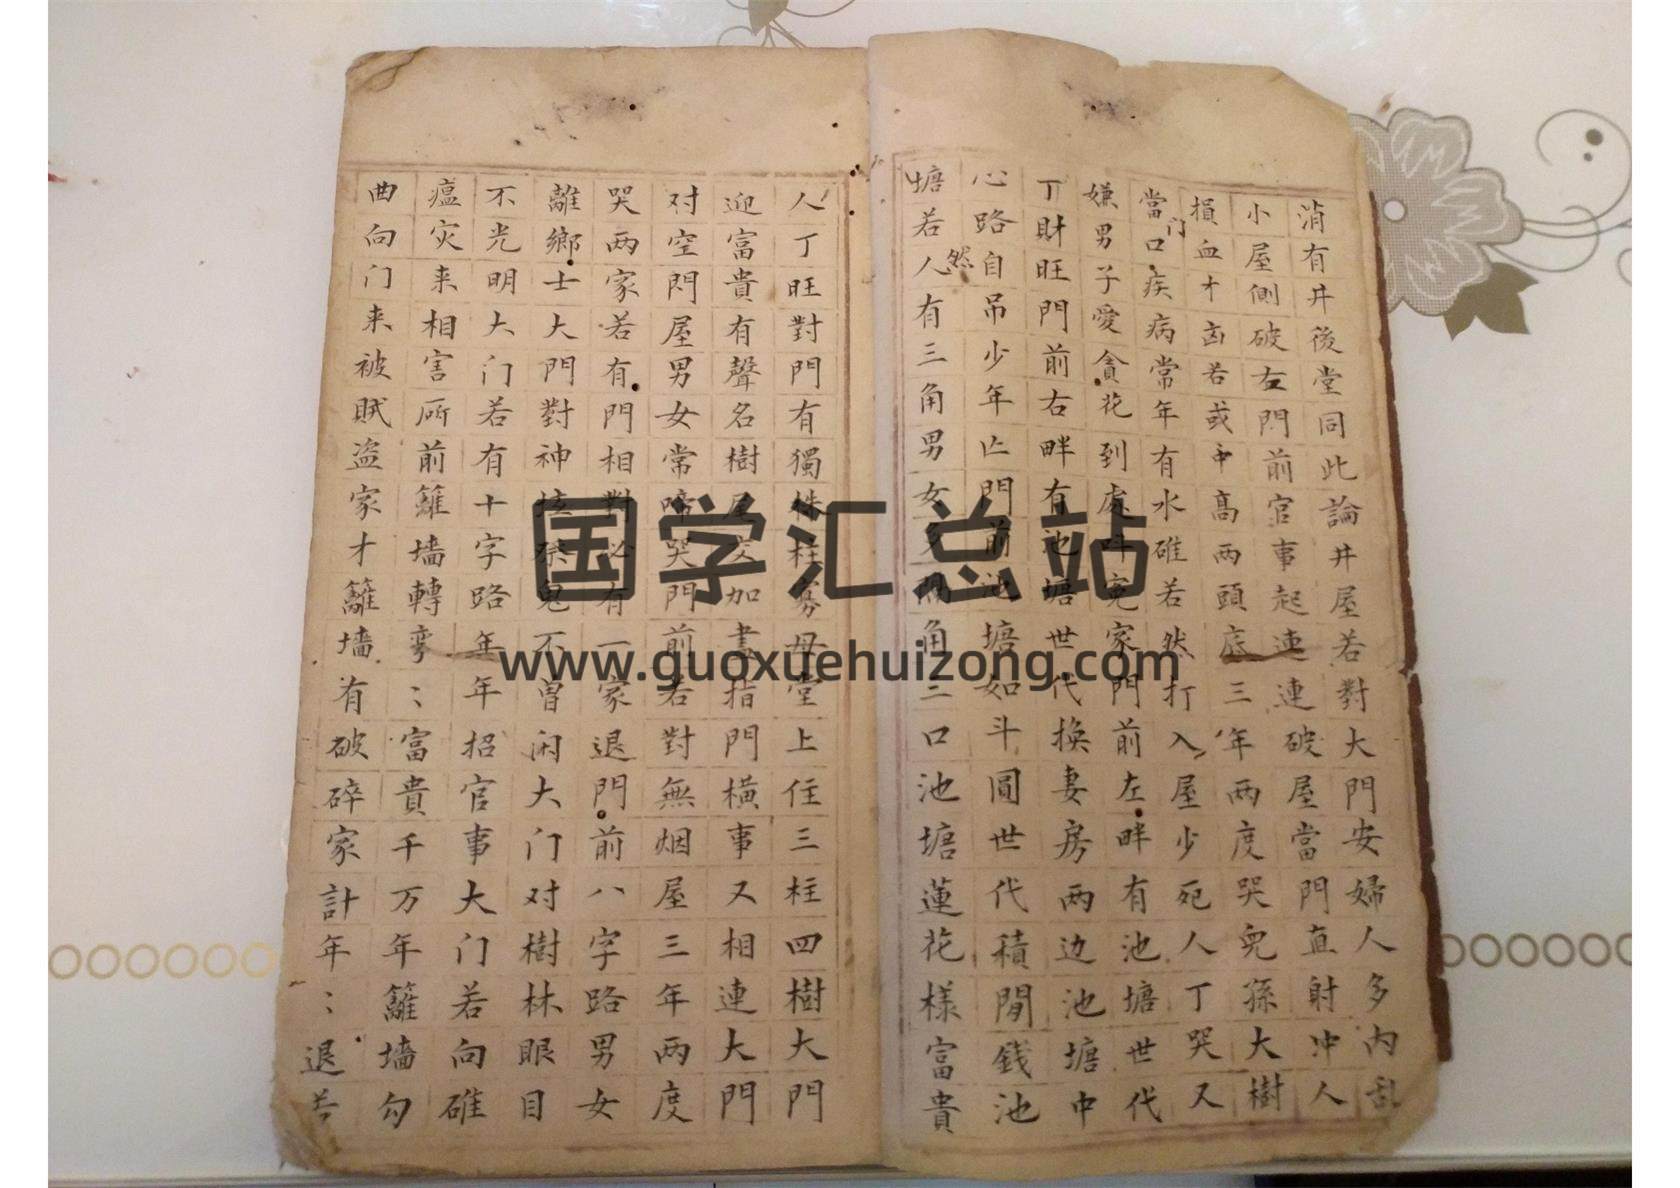 消有井後堂同此論井屋若對大門安婦人多内乱
小屋側破右門前官事起連連破屋當門直射冲人
損血才凶若或中高两頭底三年两度哭兒孫大樹
當门口疾病常年有水碓若然打入屋少死人丁哭又
嫌男子愛貪花到處斗寃家門前左畔有池塘世代
丁財旺門前右畔有池塘世代換妻房两边池塘中
心路自吊少年亡門前池塘如斗圓世代積閒錢池
塘若然人有三角男女多隔角三口池塘蓮花樣富貴
人丁旺對門有獨株柱寡母堂上住三柱四樹大門
迎富貴有聲名樹尾交加畫指門橫事又相連大門
对空門屋男女常啼哭門前若對無烟屋三年两度
哭两家若有門相對必有一家退門前八字路男女
離鄉士大門對神坛祭鬼不曾闲大门对樹林眼目
不光明大门若有十字路年年招官事大门若向碓
瘟灾来相害㕔前籬墙轉弯〻富貴千万年籬墙勾
曲向门来被贼盗家才籬墙有破碎家計年〻退若
国学汇总站
www.guoxuehuizong.com